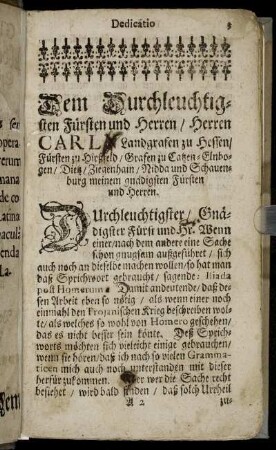 Dedicatio
3
Dem Durchleuchtig-
sten Fürsten und Herren / Herren
CARLN Landgrafen zu Hessen /
Fürsten zu Hirßfeld / Grafen zu Catzen-Elnbo-
gen / Dietz / Ziegenhain / Nidda und Schauen-
burg meinem gnädigsten Fürsten
und Herren.
DUrchleuchtigster / Gnä-
digster Fürst und Hr. Wenn
einer / nach dem andere eine Sache
schon gnugsam außgeführet / sich
auch noch an dieselbe machen wollen / so hat man
daß Sprichwort gebraucht / sagende: Iliada
post Homerum. Damit andeutende / daß des-
sen Arbeit eben so nötig / als wenn einer noch
einmahl den Trojanischen Krieg beschreiben wol-
te / als welches so wohl von Homero geschehen /
das es nicht besser sein könte. Deß Sprich-
worts möchten sich vieleicht einige gebrauchen /
wenn sie hören / daß ich nach so vielen Gramma-
ticen mich auch noch unterstanden mit dieser
herfür zukommen. Aber wer die Sache recht
besiehet / wird bald finden / daß solch Urtheil
A 2 zu-